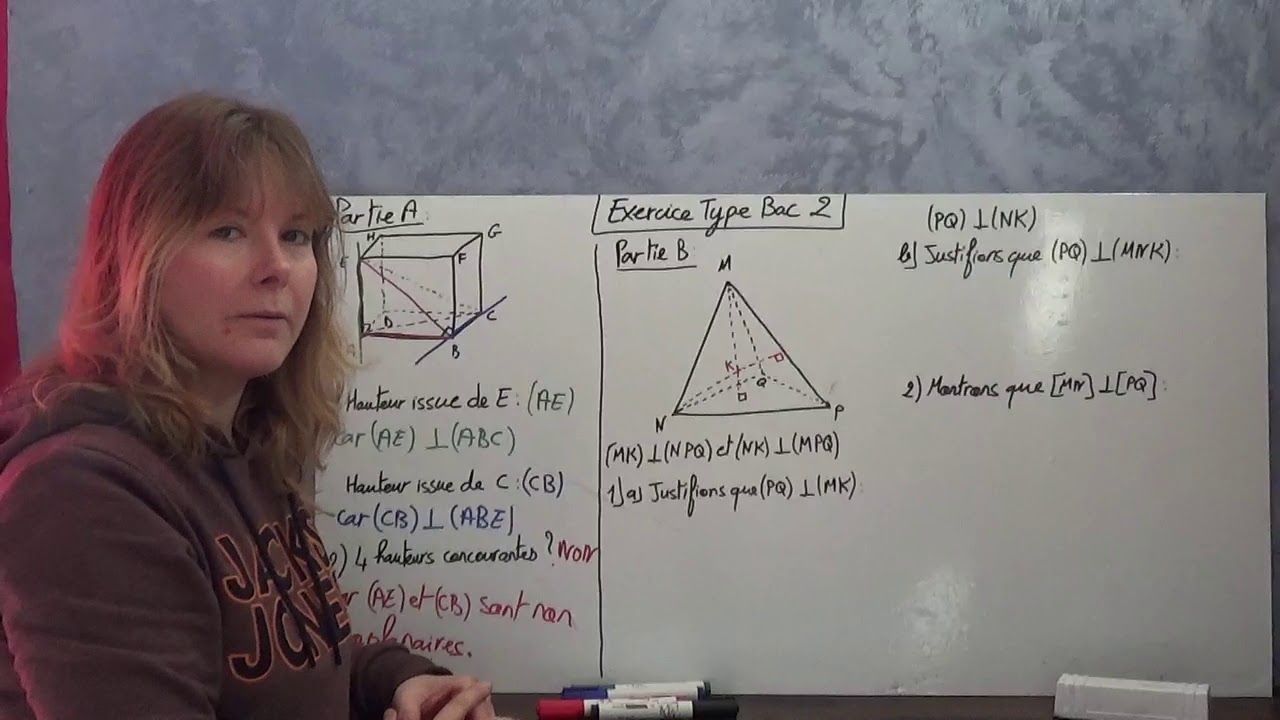 Partie A:
H
G
E
F
D
C
B
Hauteur issue de E: (AE)
car (AE) ⊥ (ABC)
Hauteur issue de C: (CB)
car (CB) ⊥ (ABE)
2) 4 hauteurs concourantes ? NON
(AE) et (CB) sont non
Exercice Type Bac 2
Partie B:
M
K
Q
N
P
(MK) ⊥ (NPQ) et (NK) ⊥ (MPQ)
1) a) Justifions que (PQ) ⊥ (MK):
(PQ) ⊥ (NK)
b) Justifions que (PQ) ⊥ (MNK):
2) Montrons que [MN] ⊥ [PQ]:
JACK
JONE